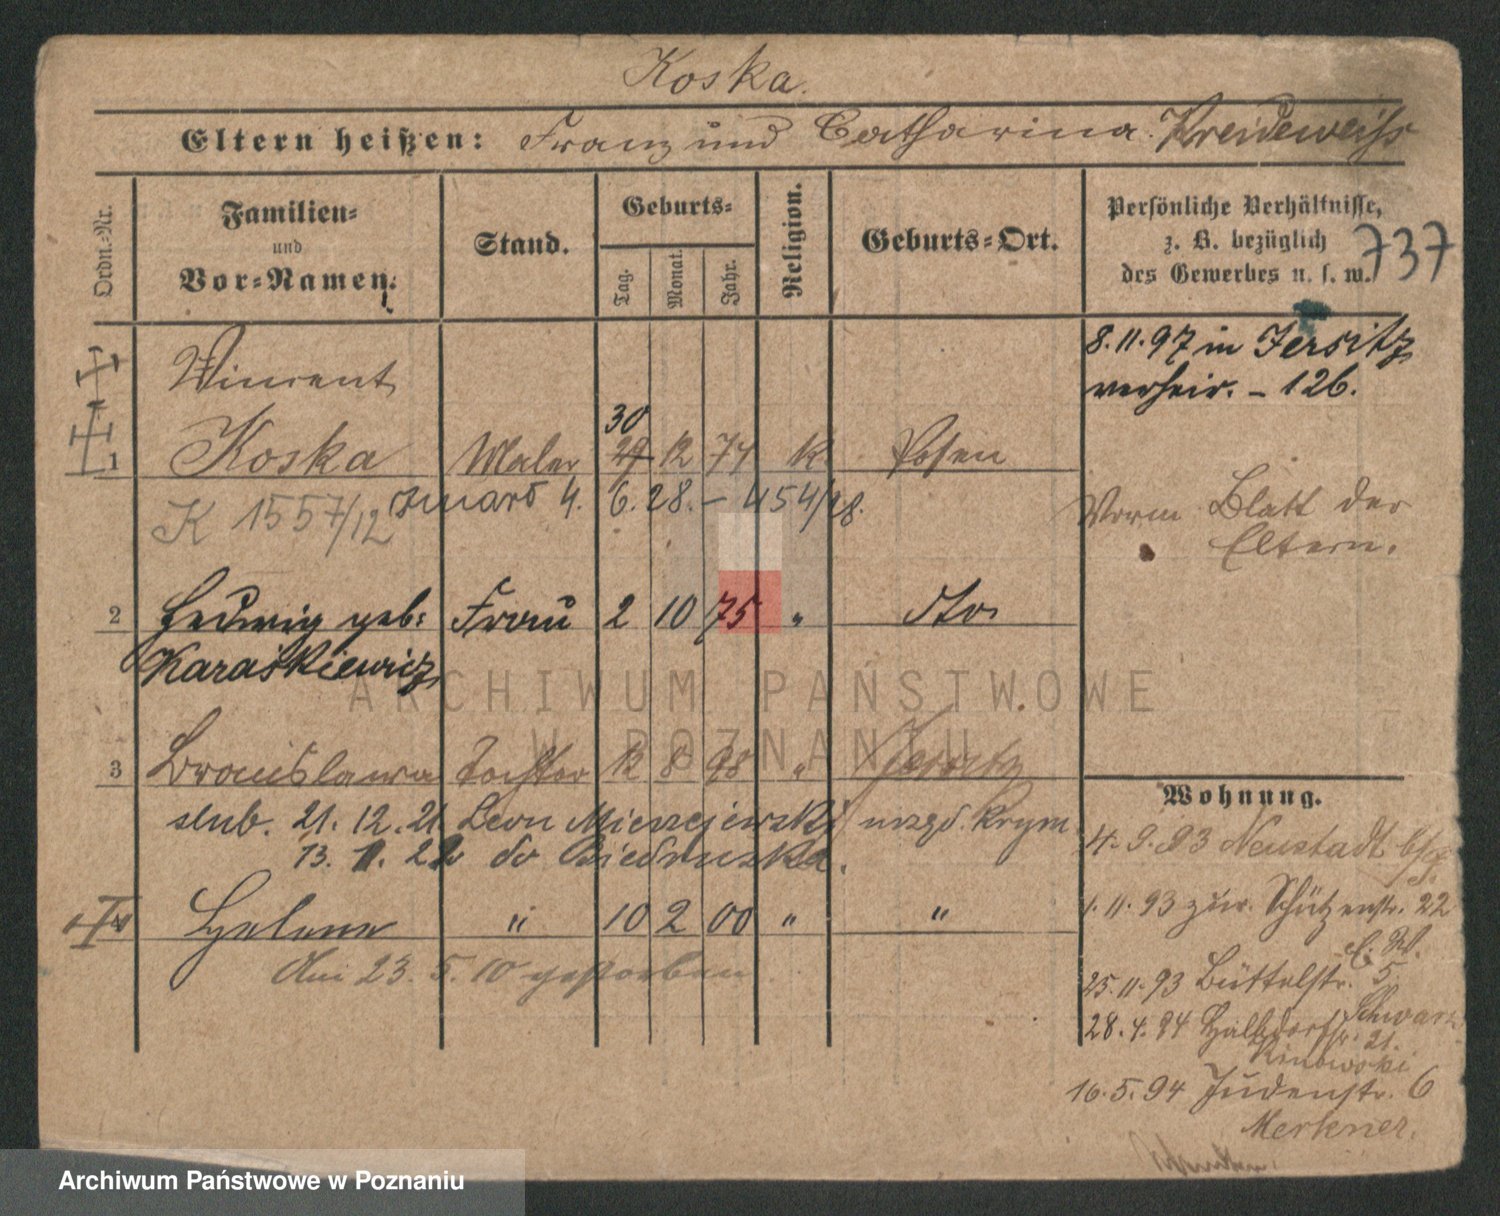 Koska.
Eltern heißen: Franz und Catharina Kreideweiss
Ordn.-Nr.
Familien-
und
Vor-Namen.
Stand.
Geburts-
Tag.
Monat.
Jahr.
Religion.
Geburts-Ort.
Persönliche Verhältnisse,
z. B. bezüglich
des Gewerbes u. s. w.
737
8.11.97 in Jersitz
verheir. - 126.
Vincent
30
1 Koska Maler 29 12 74 K Posen
K 1557/12 zmarł 4. 6. 28. - 454/28.
Vorm Blatt der
Eltern.
2 Hedwig geb: Frau 2 10 75 " dto
Karaśkiewicz
ARCHIWUM PAŃSTWOWE
W POZNANIU
3 Bronislawa Tochter 12 8 98 " Jersitz
ślub. 21. 12. 21 Leon Mierzejewski urzęd. Krym
13. 1. 22 do Biedruska.
4 Helene " 10 2 00 " "
Am 23. 5. 10 gestorben
Wohnung.
4. 9. 93 Neustadt b/P.
1. 11. 93 zur. Schützenstr. 22
25. 11. 93 Büttelstr. 5
28. 4. 94 Halbdorfstr. 21.
16. 5. 94 Judenstr. 6
Merkner.
Archiwum Państwowe w Poznaniu